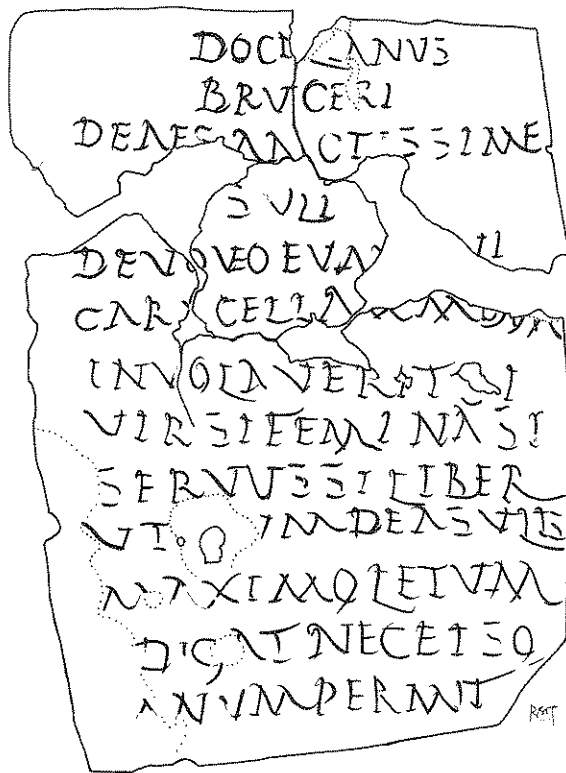 DOCILIANVS
BRVCERI
DEAESANCTISSIME
SVLI
DEVOVEOEVM
CARACELLAMMEAM
INVOLAVERITSI
VIRSIFEMINASI
SERVVSSILIBER
VT VMDEASVLIS
MAXIMOLETVM
DIGATNECEISO
MNVMPERMIT